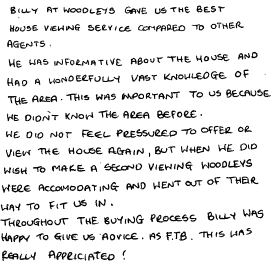 BILLY AT WOODLEYS GAVE US THE BEST
HOUSE VIEWING SERVICE COMPARED TO OTHER
AGENTS.
HE WAS INFORMATIVE ABOUT THE HOUSE AND
HAD A WONDERFULLY VAST KNOWLEDGE OF
THE AREA. THIS WAS IMPORTANT TO US BECAUSE
WE DIDN'T KNOW THE AREA BEFORE.
WE DID NOT FEEL PRESSURED TO OFFER OR
VIEW THE HOUSE AGAIN, BUT WHEN WE DID
WISH TO MAKE A SECOND VIEWING WOODLEYS
WERE ACCOMODATING AND WENT OUT OF THEIR
WAY TO FIT US IN.
THROUGHOUT THE BUYING PROCESS BILLY WAS
HAPPY TO GIVE US ADVICE. AS F.T.B. THIS WAS
REALLY APPRICIATED!